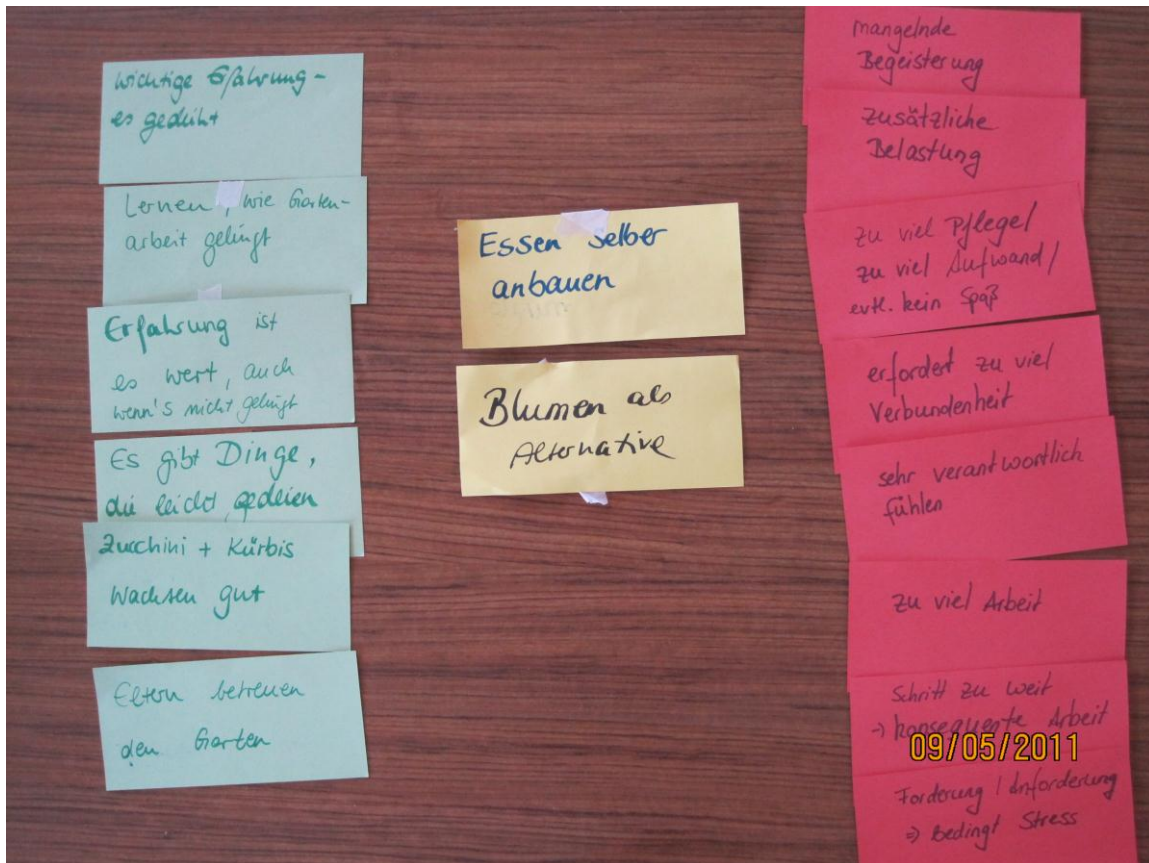 wichtige Erfahrung -
es gedeiht
Lernen, wie Garten-
arbeit gelingt
Erfahrung ist
es wert, auch
wenn's nicht gelingt
Es gibt Dinge,
die leicht gedeien
Zucchini + Kürbis
wachsen gut
Eltern betreuen
den Garten
Essen selber
anbauen
Blumen als
Alternative
mangelnde
Begeisterung
zusätzliche
Belastung
zu viel Pflege/
zu viel Aufwand/
evtl. kein Spaß
erfordert zu viel
Verbundenheit
sehr verantwortlich
fühlen
zu viel Arbeit
Schritt zu weit
→ konsequente Arbeit
09/05/2011
Forderung / Anforderung
⇒ Bedingt Stress